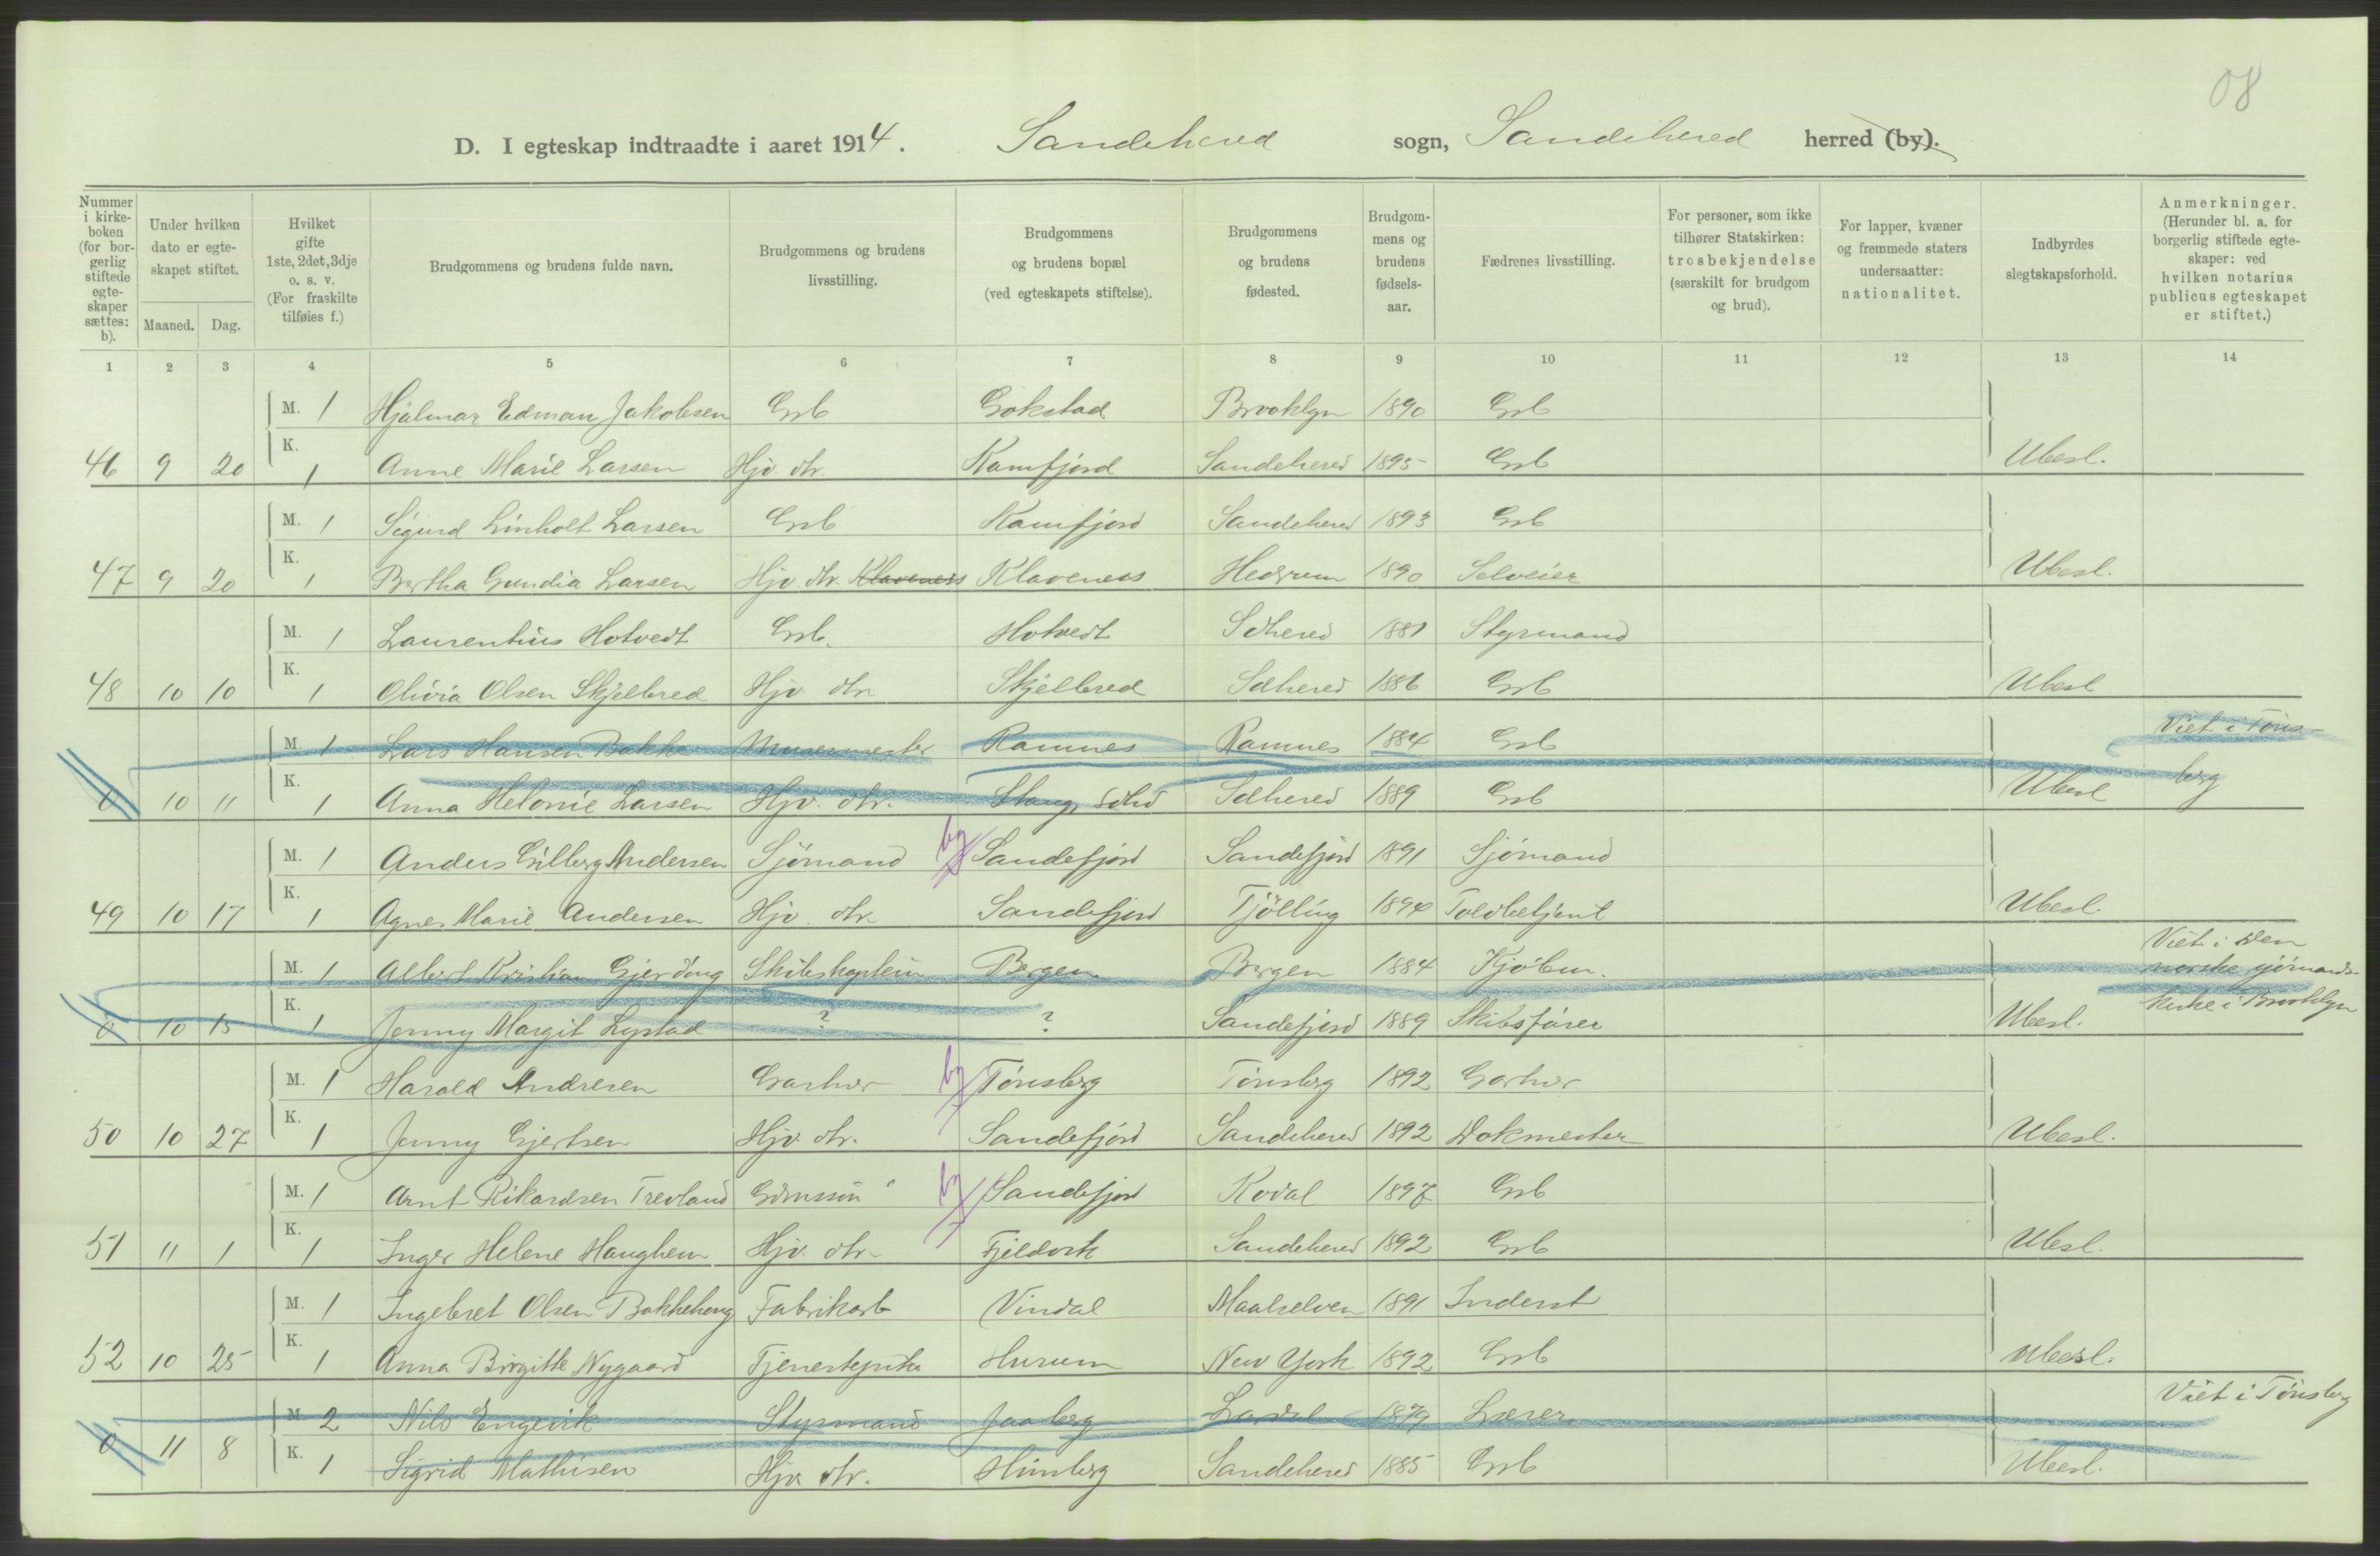 08
D. I egteskap indtraadte i aaret 1914. Sandeherred sogn, Sandeherred herred (by).
Nummer i kirkeboken (for borgerlig stiftede egteskaper sættes: b).
Under hvilken dato er egteskapet stiftet.
Maaned. Dag.
Hvilket gifte 1ste, 2det, 3dje o. s. v. (For fraskilte tilføies f.)
Brudgommens og brudens fulde navn.
Brudgommens og brudens livsstilling.
Brudgommens og brudens bopæl (ved egteskapets stiftelse).
Brudgommens og brudens fødested.
Brudgommens og brudens fødselsaar.
Fædrenes livsstilling.
For personer, som ikke tilhører Statskirken: trosbekjendelse (særskilt for brudgom og brud).
For lapper, kvæner og fremmede staters undersaatter: nationalitet.
Indbyrdes slegtskapsforhold.
Anmerkninger. (Herunder bl. a. for borgerlig stiftede egteskaper: ved hvilken notarius publicus egteskapet er stiftet.)
1 2 3 4 5 6 7 8 9 10 11 12 13 14
M. 1 Hjalmar Edman Jakobsen Grb Gokstad Brooklyn 1890 Grb
46 9 20 K. 1 Anne Marie Larsen Hjv. dtr. Kamfjord Sandehered 1895 Grb Ubesl.
M. 1 Sigurd Linholt Larsen Grb Kamfjord Sandehered 1893 Grb
47 9 20 K. 1 Bertha Gundia Larsen Hjv. dtr. Klaveness Klaveness Hedrum 1890 Selveier Ubesl.
M. 1 Laurentius Hotvedt Grb. Hotvedt Sdhered 1881 Styrmand
48 10 10 K. 1 Olivia Olsen Skjelbred Hjv. dtr Skjelbred Sdhered 1886 Grb Ubesl
M. 1 Lars Hansen Bakke Murermester Ramnes Ramnes 1884 Grb Viet i Tøns-
0 10 11 K. 1 Anna Helonie Larsen Hjv. dtr. Stang, Sdhd Sdhered 1889 Grb Ubesl berg
M. 1 Anders Gilberg Andersen Sjömand by Sandefjord Sandefjord 1891 Sjömand
49 10 17 K. 1 Agnes Marie Andersen Hjv. dtr. Sandefjord Tjölling 1894 Toldbetjent Ubesl.
M. 1 Albert Kristian Gjerding Skibskaptein Bergen Bergen 1884 Kjøbm. Viet i den norske sjömands-
0 10 15 K. 1 Jenny Margit Lystad ? ? Sandefjord 1889 Skibsfører Ubesl. kirke i Brooklyn
M. 1 Harald Andresen Garver by Tönsberg Tönsberg 1892 Garver
50 10 27 K. 1 Jenny Gjertsen Hjv. dtr. Sandefjord Sandehered 1892 Dokmester Ubesl.
M. 1 Arnt Rikardsen Trevland by Sandefjord Kodal 1897 Grb
51 11 1 K. 1 Inger Helene Haughem Hjv. dtr. Fjeldvik Sandehered 1892 Grb Ubesl.
M. 1 Ingebret Olsen Bakkehaug Fabrikarb Vindal Maalselven 1891 Inderst
52 10 25 K. 1 Anna Birgitte Nygaard Tjenestepike Hurum New York 1892 Grb Ubesl.
M. 2 Nils Engevik Styrmand Jaaberg Lardal 1879 Lærer Viet i Tönsberg
0 11 8 K. 1 Sigrid Mathisen Hjv. dtr. Himberg Sandehered 1885 Grb Ubesl.